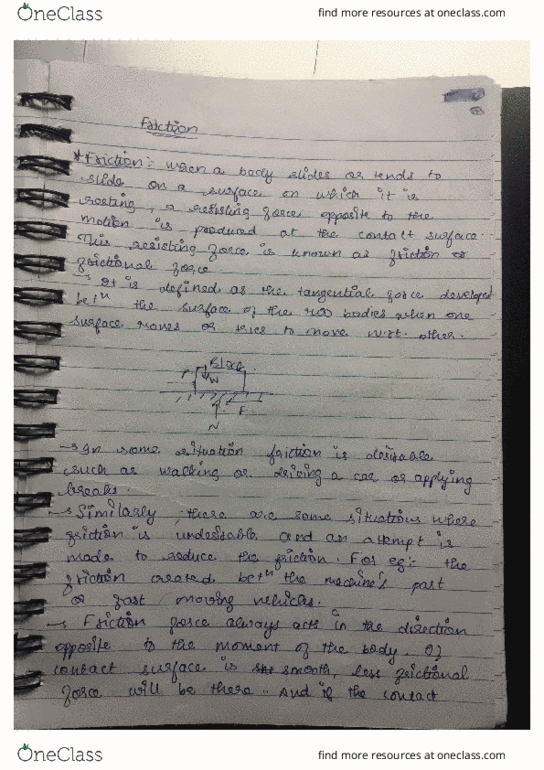 OneClass
find more resources at oneclass.com
Friction
* Friction :- when a body slides or tends to
slide on a surface on which it is
resting, a resisting force opposite to the
motion is produced at the contact surface.
This resisting force is known as friction or
frictional force
It is defined as the tangential force developed
betn the surface of the two bodies when one
surface moves or tries to move w.r.t. other.
Block
P
W
F
N
→ In some situation friction is desirable
such as walking or driving a car or applying
breaks.
→ Similarly, there are some situations where
friction is undesirable and an attempt is
made to reduce the friction. For eg:- the
friction created betn the machine's part
or fast moving vehicles.
→ Friction force always acts in the direction
opposite to the moment of the body. If
contact surface is smooth, less frictional
force will be there. And if the contact
OneClass
find more resources at oneclass.com